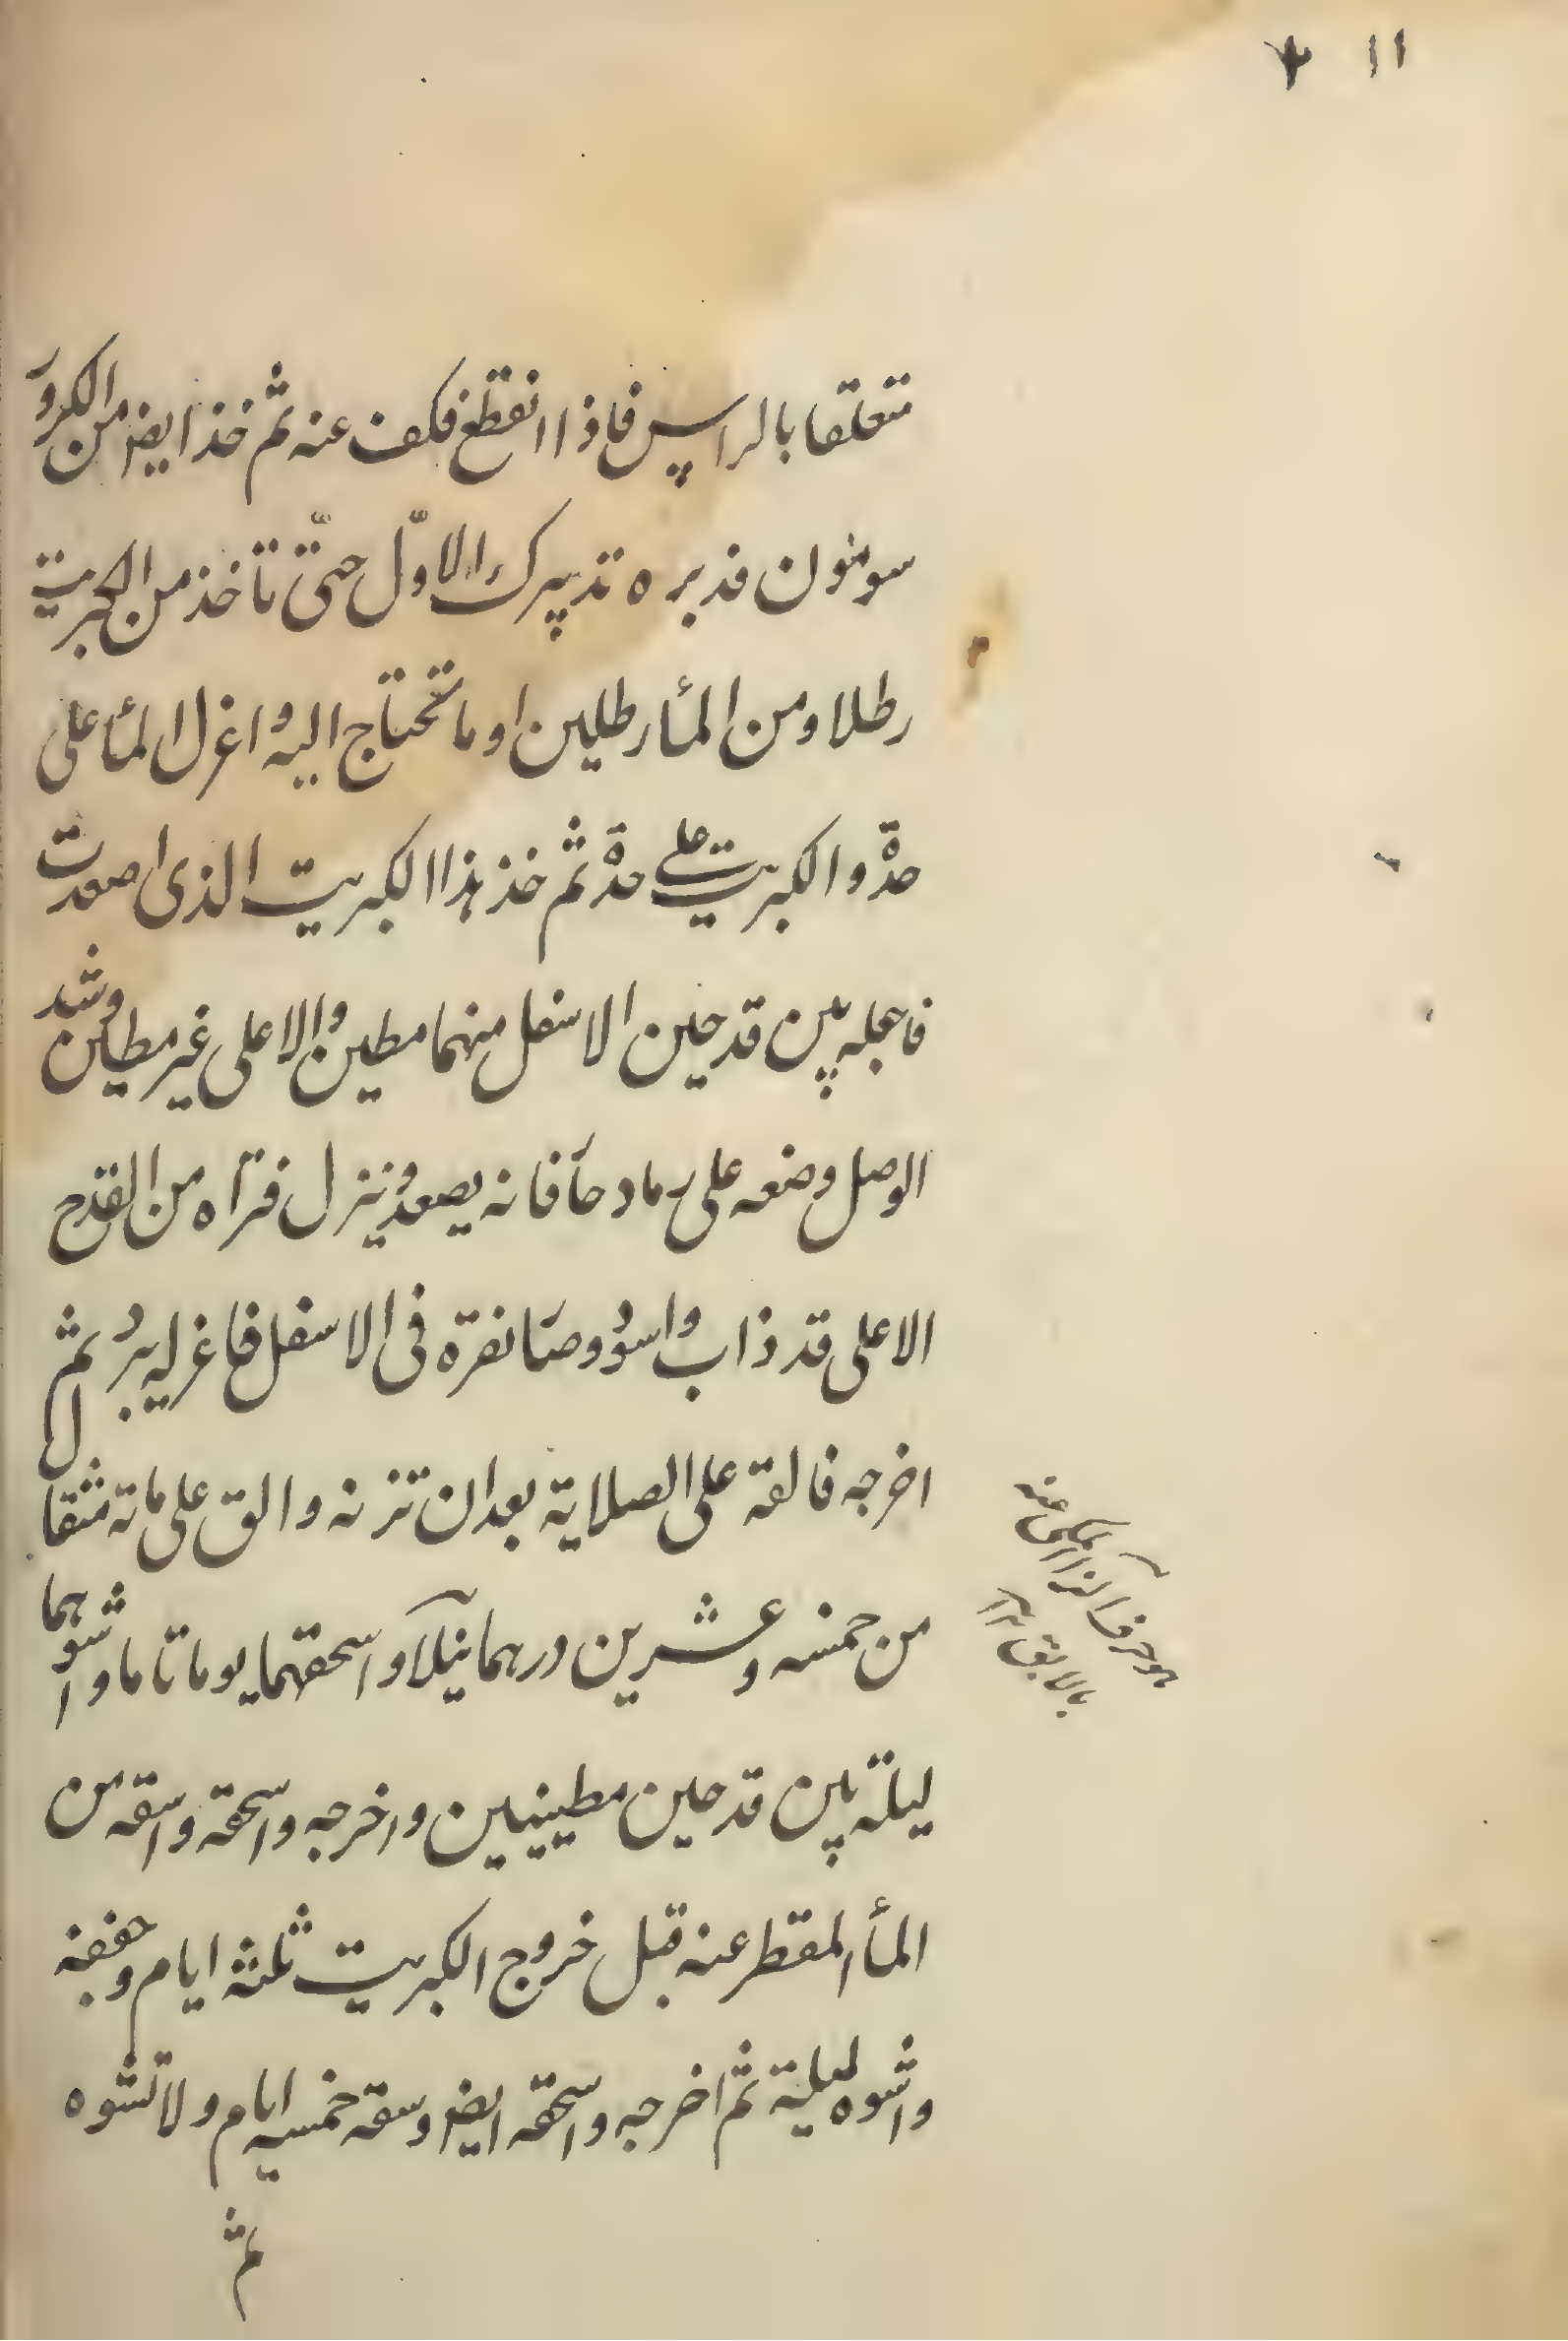 ١١
متعلقا بالراس فاذا انقطع فكف عنه ثم خذ ايضا من الكرو
سومنون فدبره تدبيرك الاول حتى تاخذ من الكبريت
رطلا ومن المأ رطلين او ما تحتاج اليه واغرل المأ على
حدة والكبريت على حدة ثم خذ هذا الكبريت الذى اصعدت
فاجعله بين قدحين الاسفل منهما مطين والاعلى غير مطين وشد
الوصل وضعه على رماد حار فانه يصعد وينزل فتراه من القدح
الاعلى قد ذاب واسود وصار نقرة فى الاسفل فاغرله يبرد ثم
اخرجه فالقه على الصلاية بعد ان تزنه والق على ماته مثقال
من خمسه وعشرين درهما نيلا واسحقهما يوما تاما واشوهما
ليلة بين قدحين مطينين واخرجه واسحقه واسقه من
المأ المقطر عنه قبل خروج الكبريت ثلثة ايام وجففه
واشوه ليلية ثم اخرجه واسحقه ايضا وسقه خمسه ايام ولا تشوه
ثم